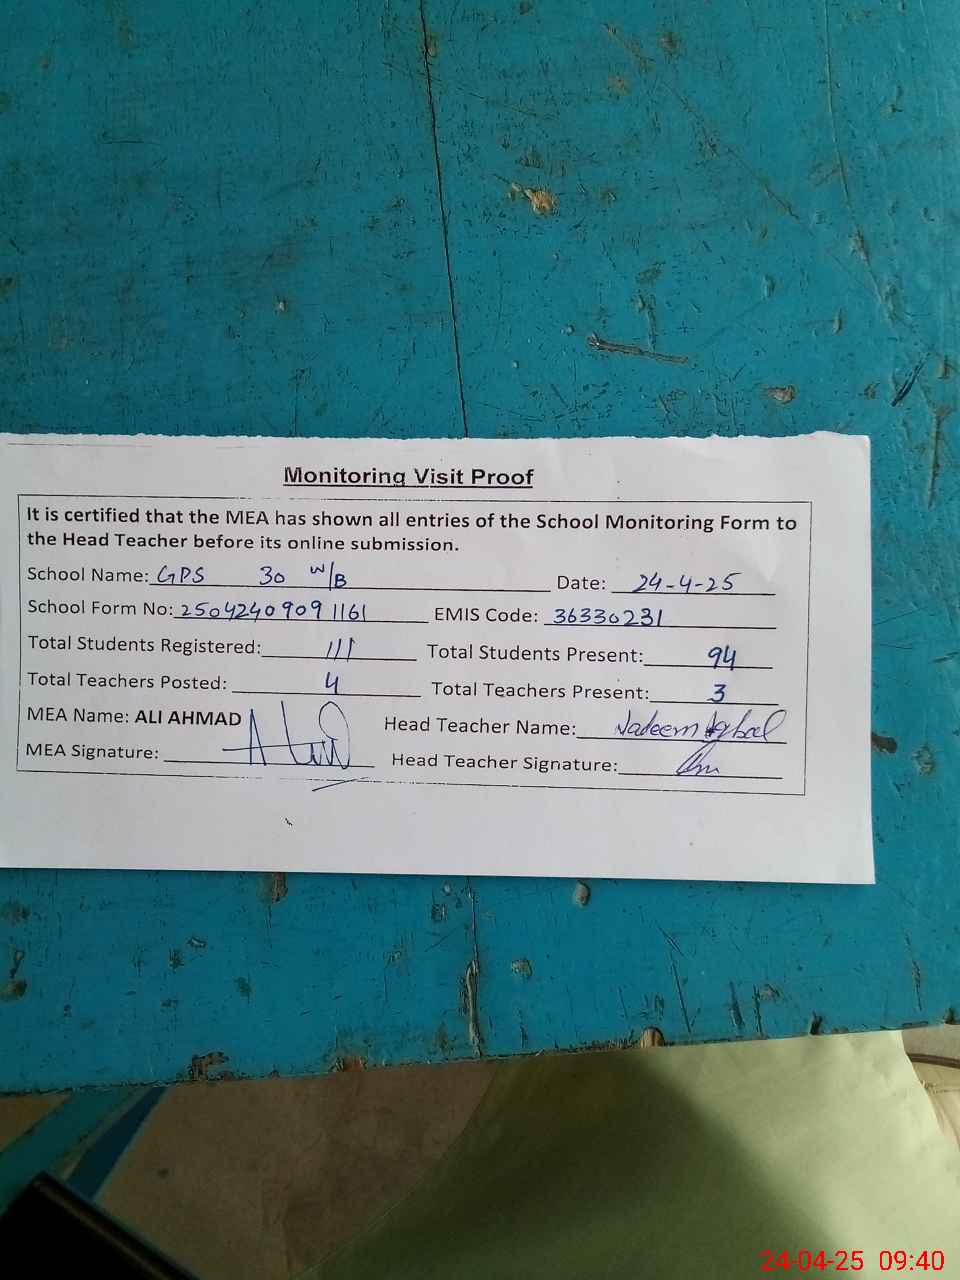 Monitoring Visit Proof
It is certified that the MEA has shown all entries of the School Monitoring Form to
the Head Teacher before its online submission.
School Name: GPS 30 W/B Date: 24-4-25
School Form No: 25042409091161 EMIS Code: 36330231
Total Students Registered: 111 Total Students Present: 94
Total Teachers Posted: 4 Total Teachers Present: 3
MEA Name: ALI AHMAD Head Teacher Name: Nadeem Iqbal
MEA Signature: Head Teacher Signature:
24-04-25 09:40